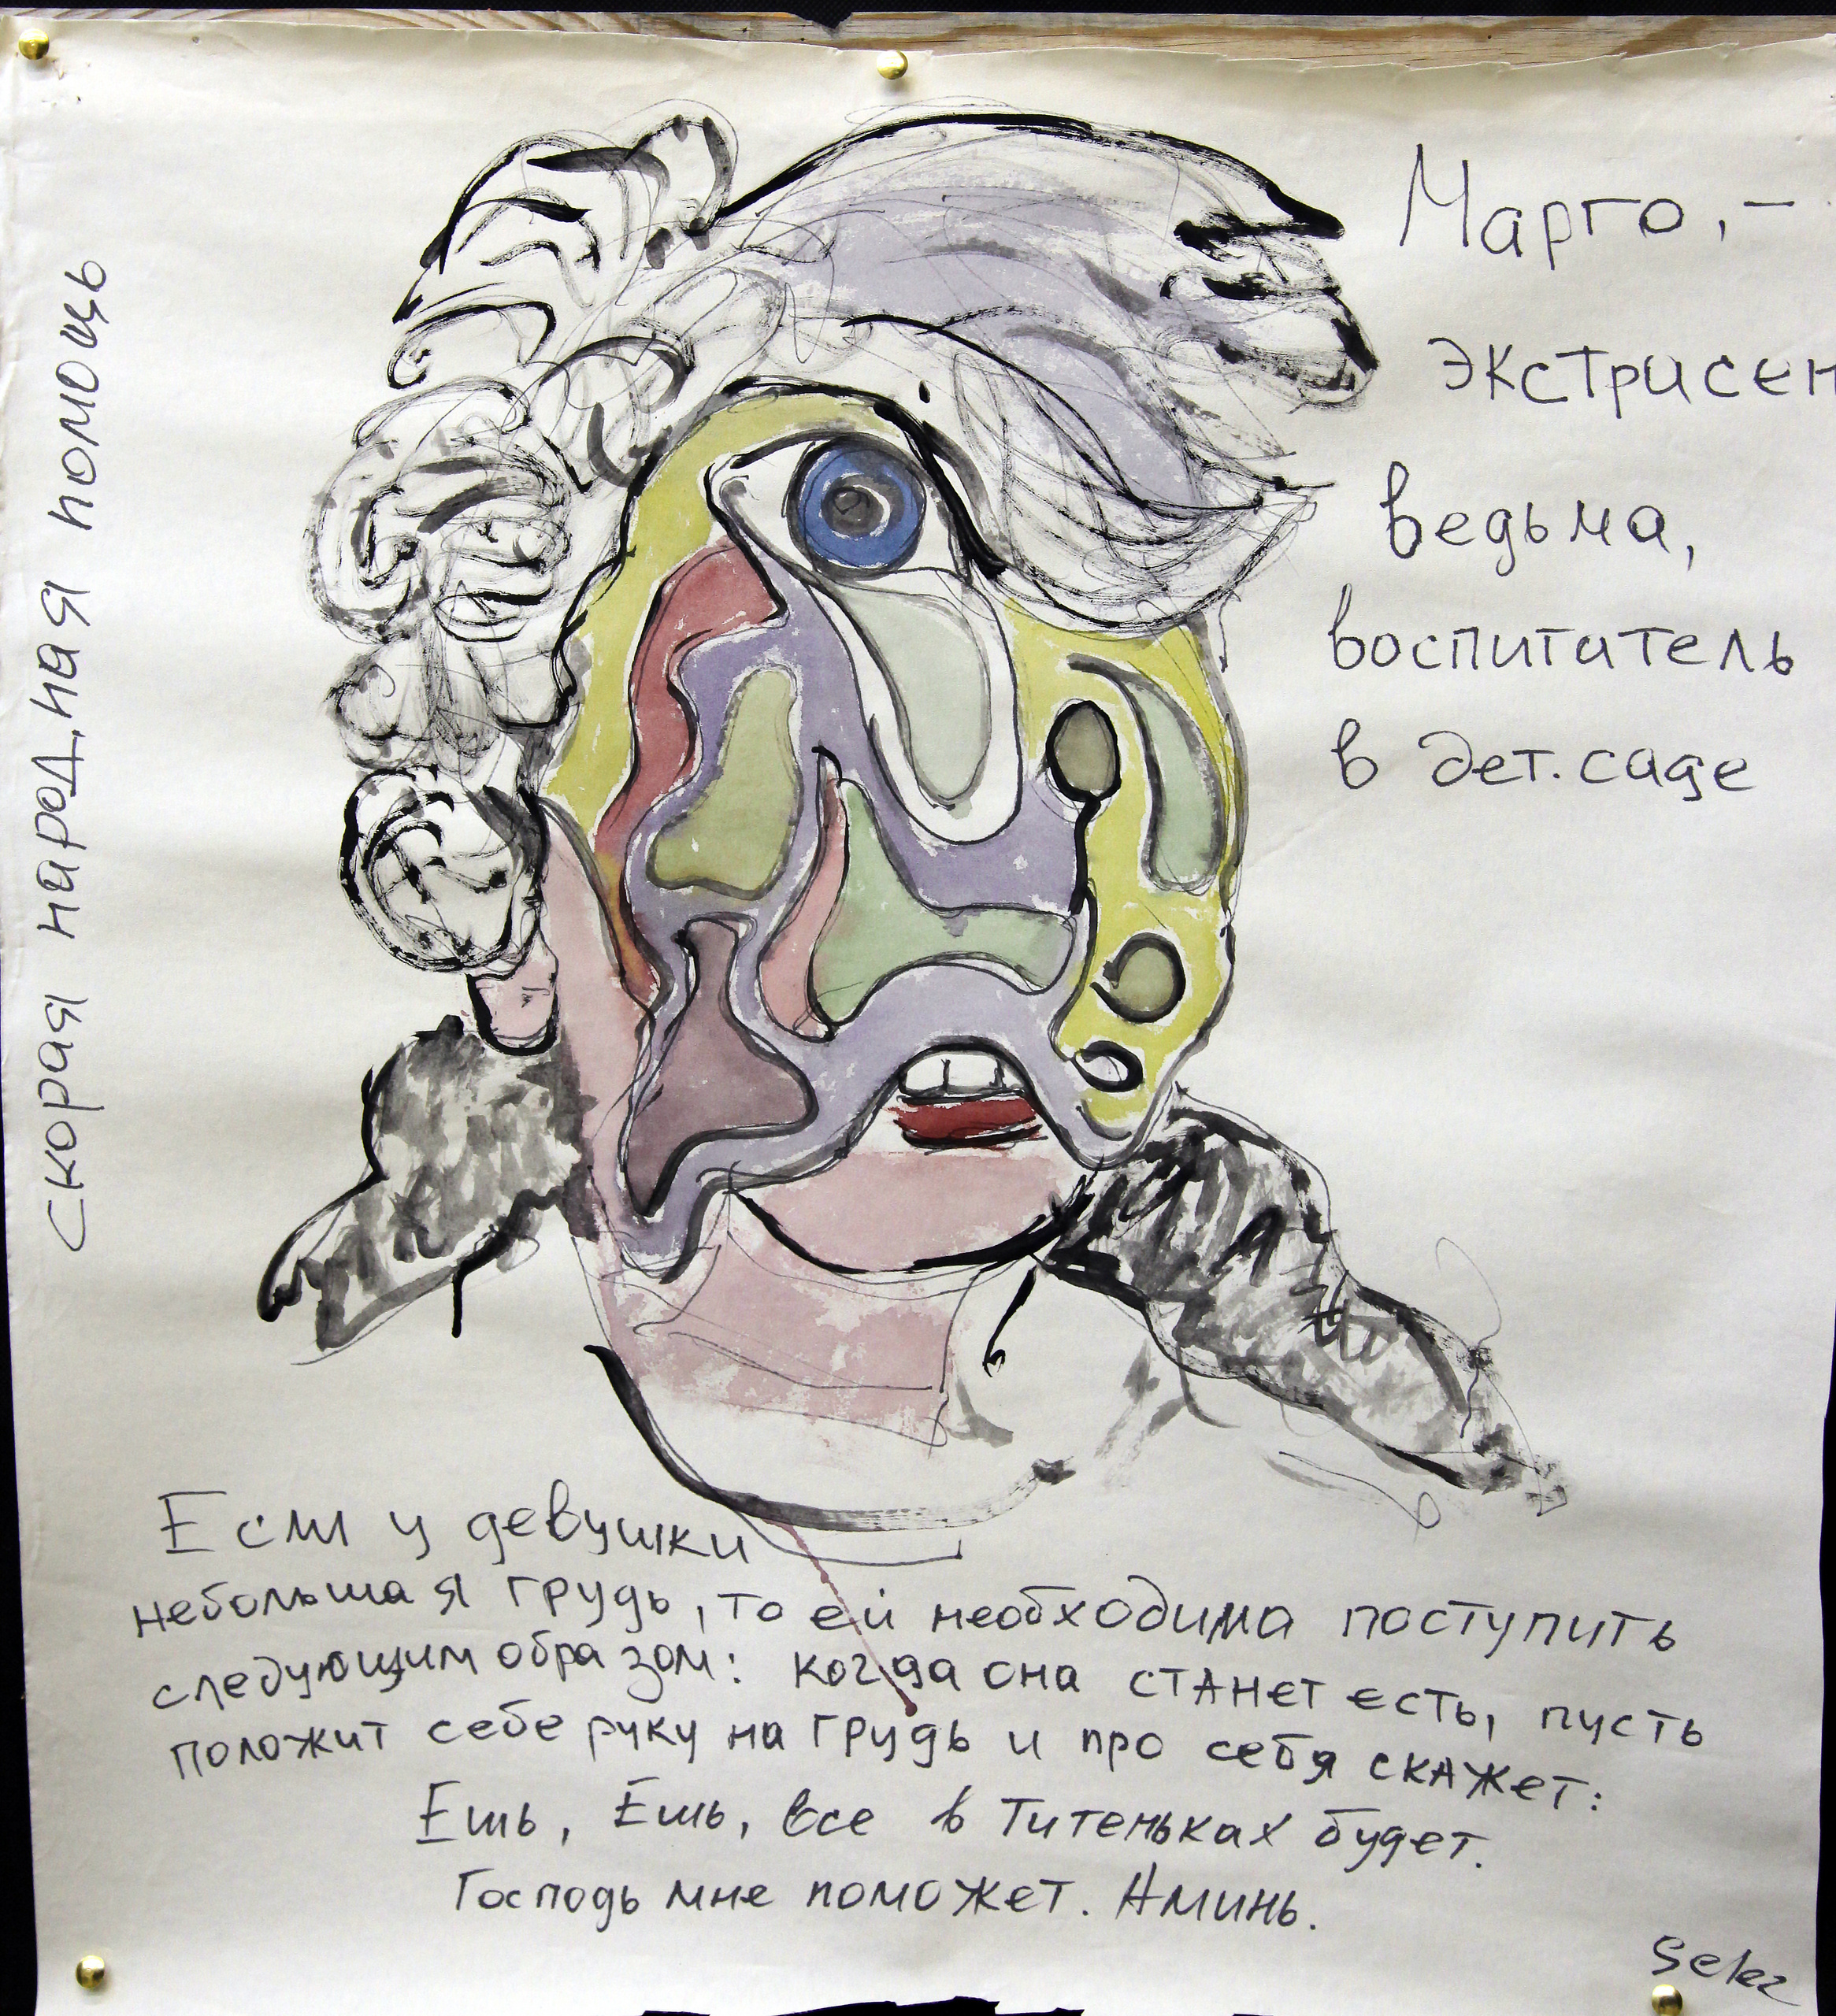 скорая народ,ная помощь
Марго,-
экстрисен
ведьма,
воспитатель
в дет.саде
Если у девушки
небольшая грудь, то ей необходима поступить
следующим образом: когда она станет есть, пусть
положит себе руку на грудь и про себя скажет:
Ешь, Ешь, все в Титеньках будет.
Господь мне поможет. Аминь.